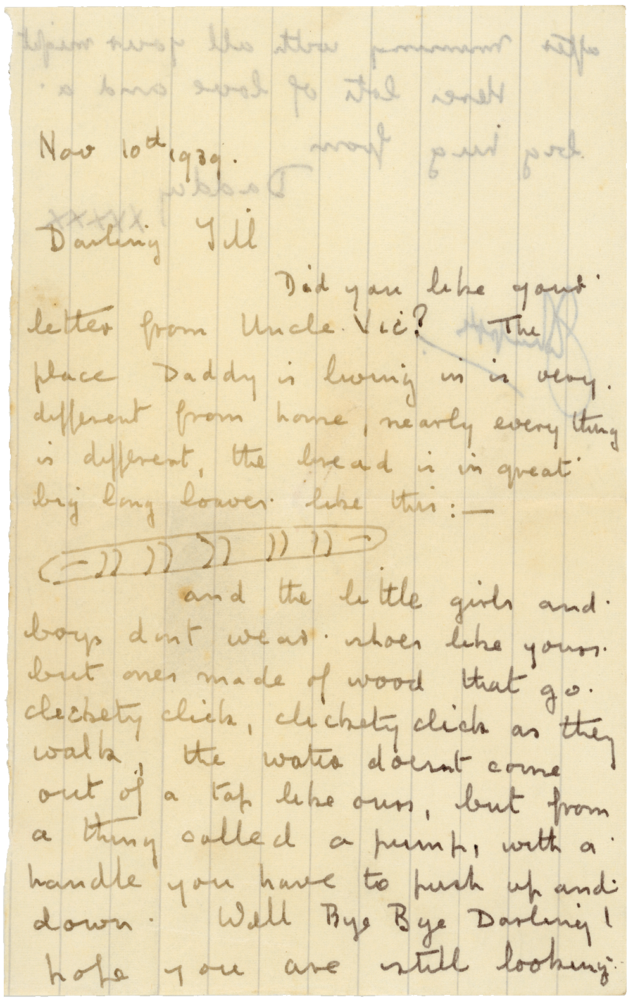 Nov 10th 1939.
Darling Jill
Did you like your
letter from Uncle Vic? The
place Daddy is living in is very
different from home, nearly every thing
is different, the bread is in great
big long loaves like this:—
and the little girls and
boys dont wear shoes like yours
but ones made of wood that go
clickety click, clickety click as they
walk, the water doesnt come
out of a tap like ours, but from
a thing called a pump, with a
handle you have to push up and
down. Well Bye Bye Darling!
hope you are still looking
after mummy with all your might
Heres lots of love and a
big hug from
Daddy
xxxxx